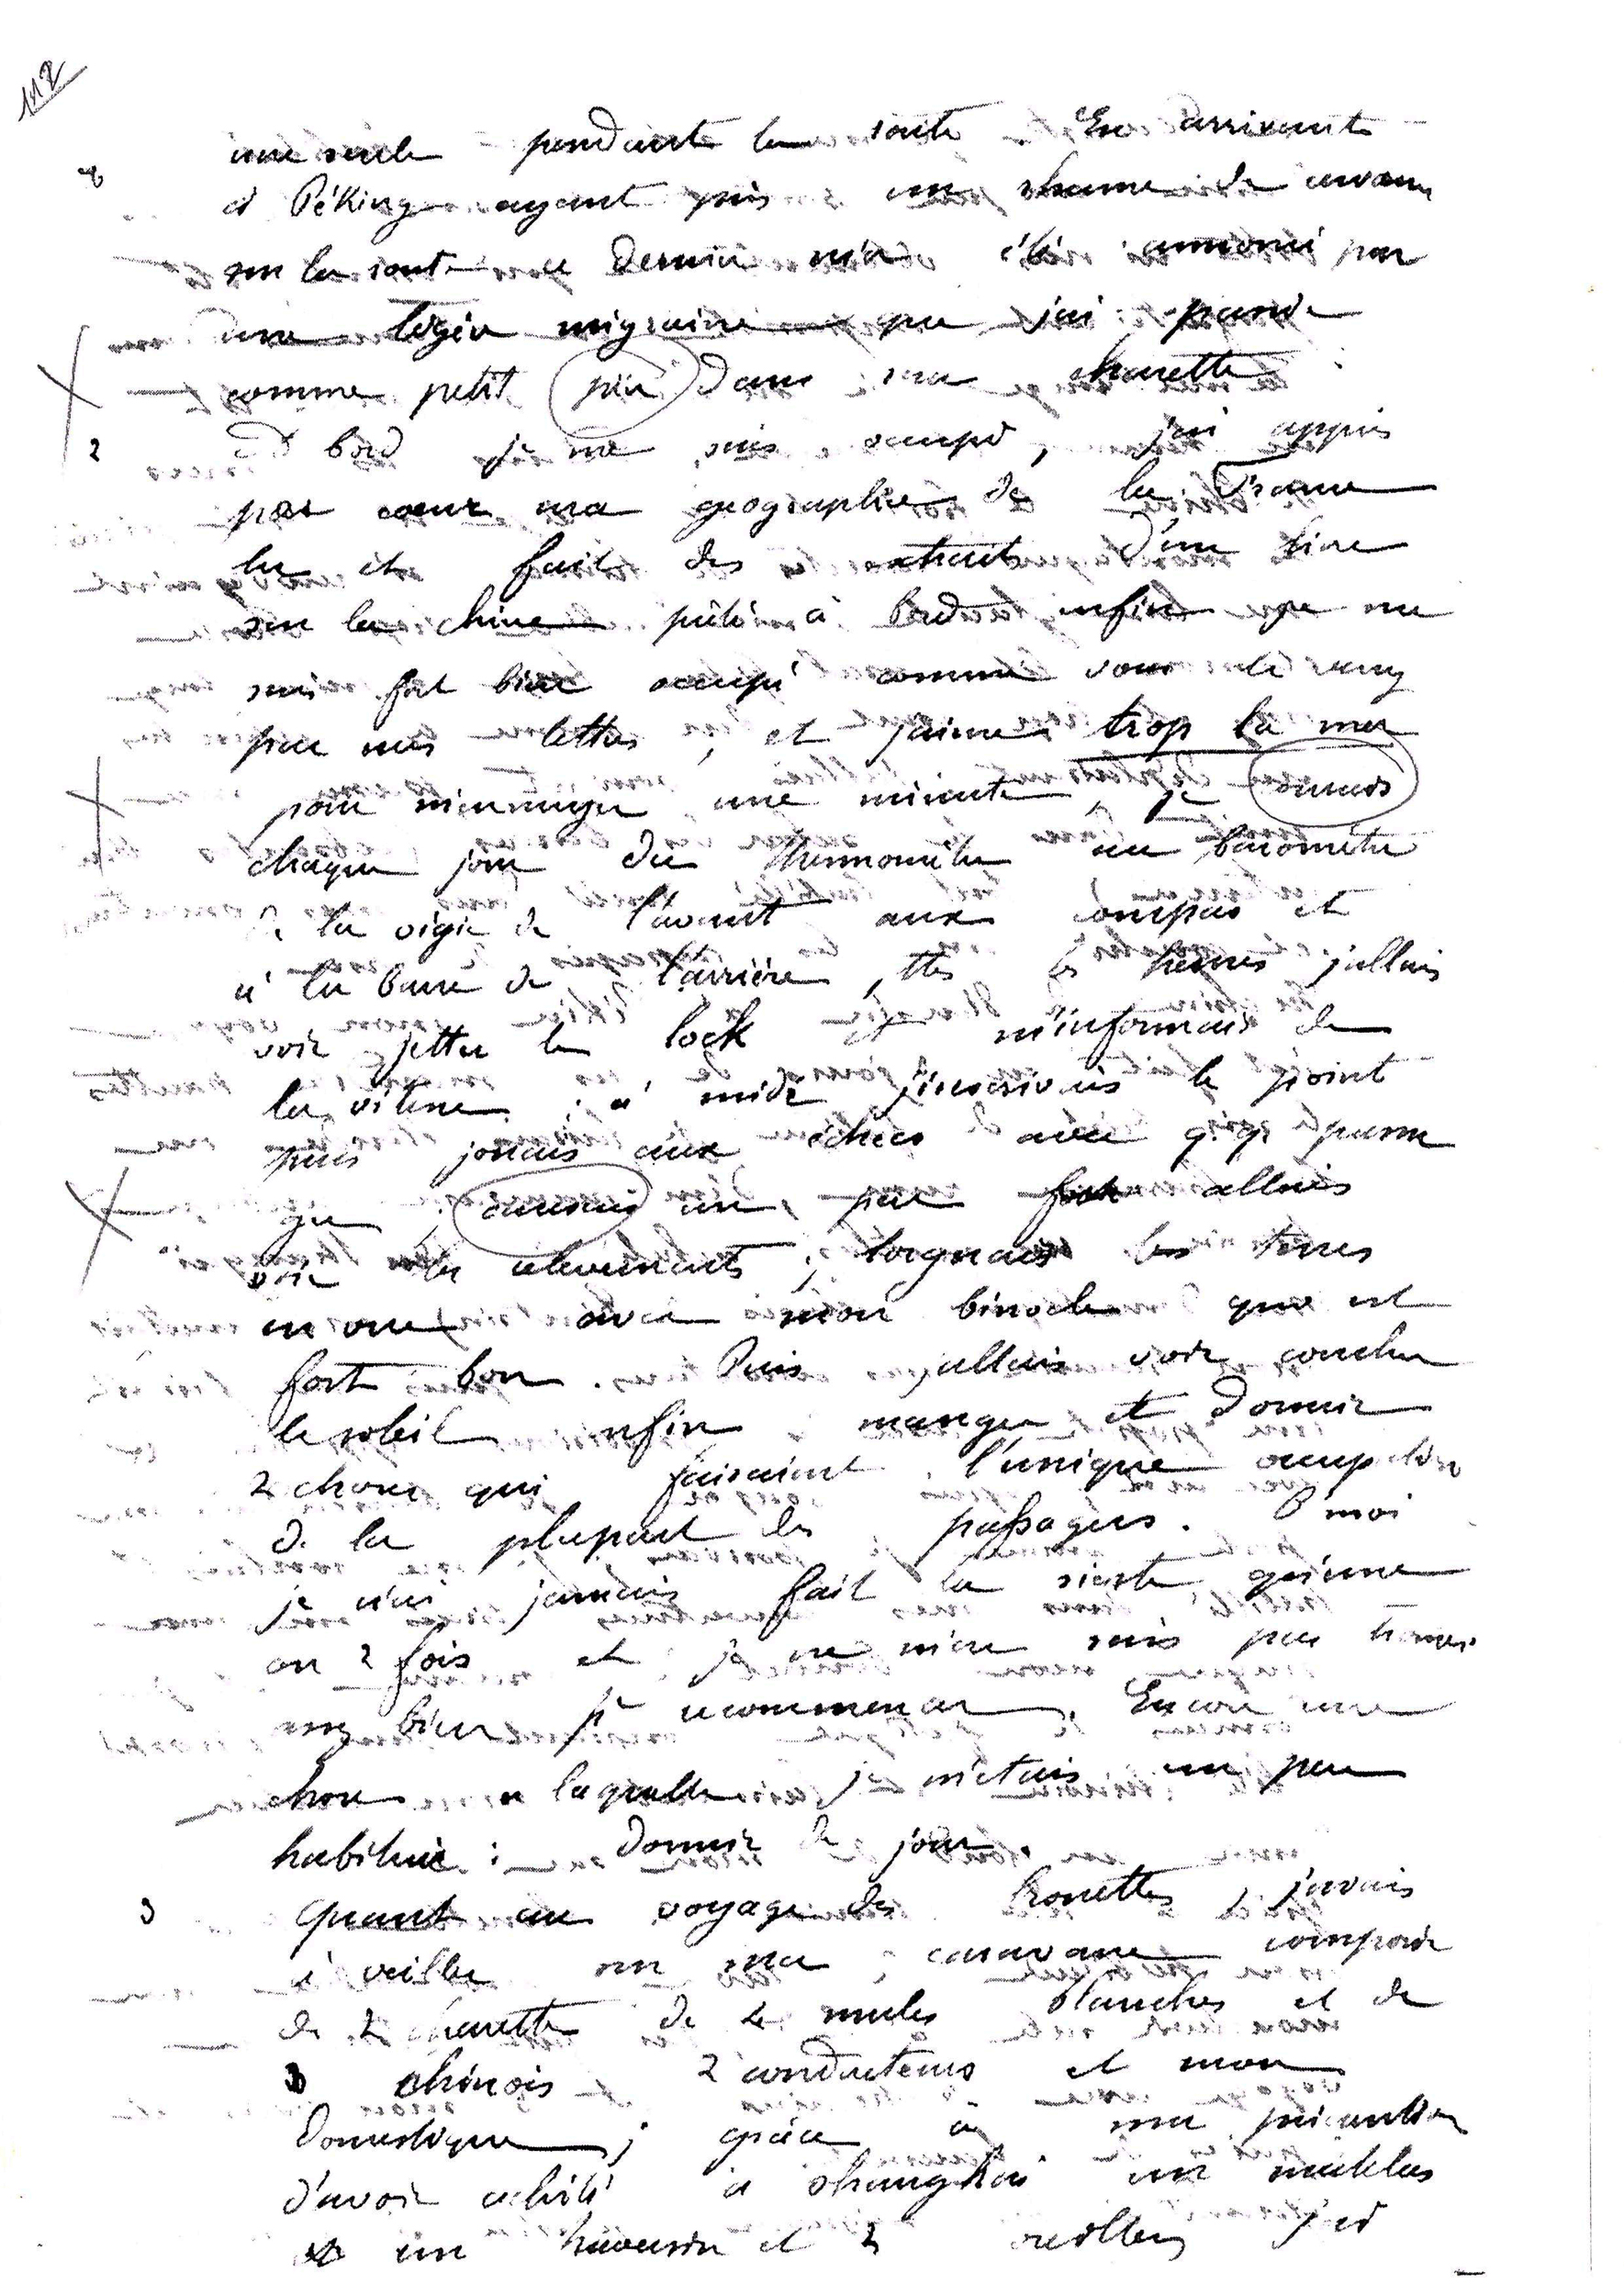 112
une seule pendant la route En arrivant
8
à Péking ayant pris un rhume de cerveau
sur la route ce dernier m'a été annoncé par
une légère migraine que j'ai
comme petit dans ma charette
2
à bord je me suis occupé, j'ai appris
par cœur ma geographie de la France
lu et fait des extraits d'un livre
sur la chine prêté à bord enfin je me
suis fort bien occupé comme vous le verrez
par mes lettres, et j'aime trop la mer
pour m'ennuyer une minute, je
chaque jour du thermomètre au baromètre
de la vigie de l'avant aux compas et
à la barre de l'arrière, ttes les heures j'allais
voir jetter le lock et m'informais de
la vitesse, à midi j'inscrivais le point
puis jouais aux échecs avec q.q. passa
ger, causais un peu allais
voir les relevements, lorgnais les terres
en vue avec mon binocle qui est
fort bon. Puis j'allais voir coucher
le soleil enfin manger et dormir
2 choses qui faisaient l'unique occupation
de la plupart des passagers. P' moi
je n'ai jamais fait la sieste qu'une
ou 2 fois et je ne m'en suis pas trouvé
assez bien pr recommencer. Encore une
chose a laquelle je m'etais un peu
habitué : dormir de jour.
3
Quant au voyage des brouettes, j'avais
à veiller sur ma caravane composée
de 2 charettes de 4 mules blanches et de
3 chinois 2 conducteurs et mon
domestique ; grâce à ma précaution
d'avoir acheté à Shanghai un matelas
un traversin et 2 oreillers j'ai